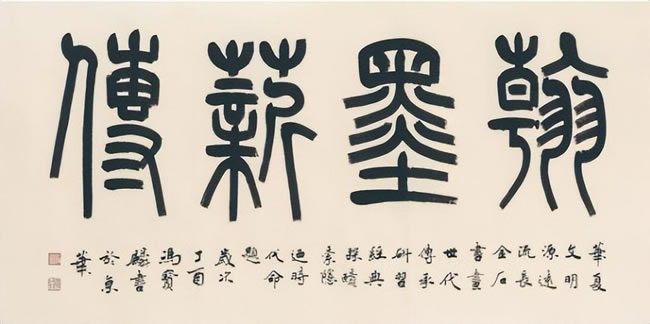 翰墨薪傳
華夏
文明
源遠
流長
金石
書畫
世代
傳承
研習
經典
探賾
索隱
迺時
代命
題
歲次
丁酉
馮寶
麟書
於京
華